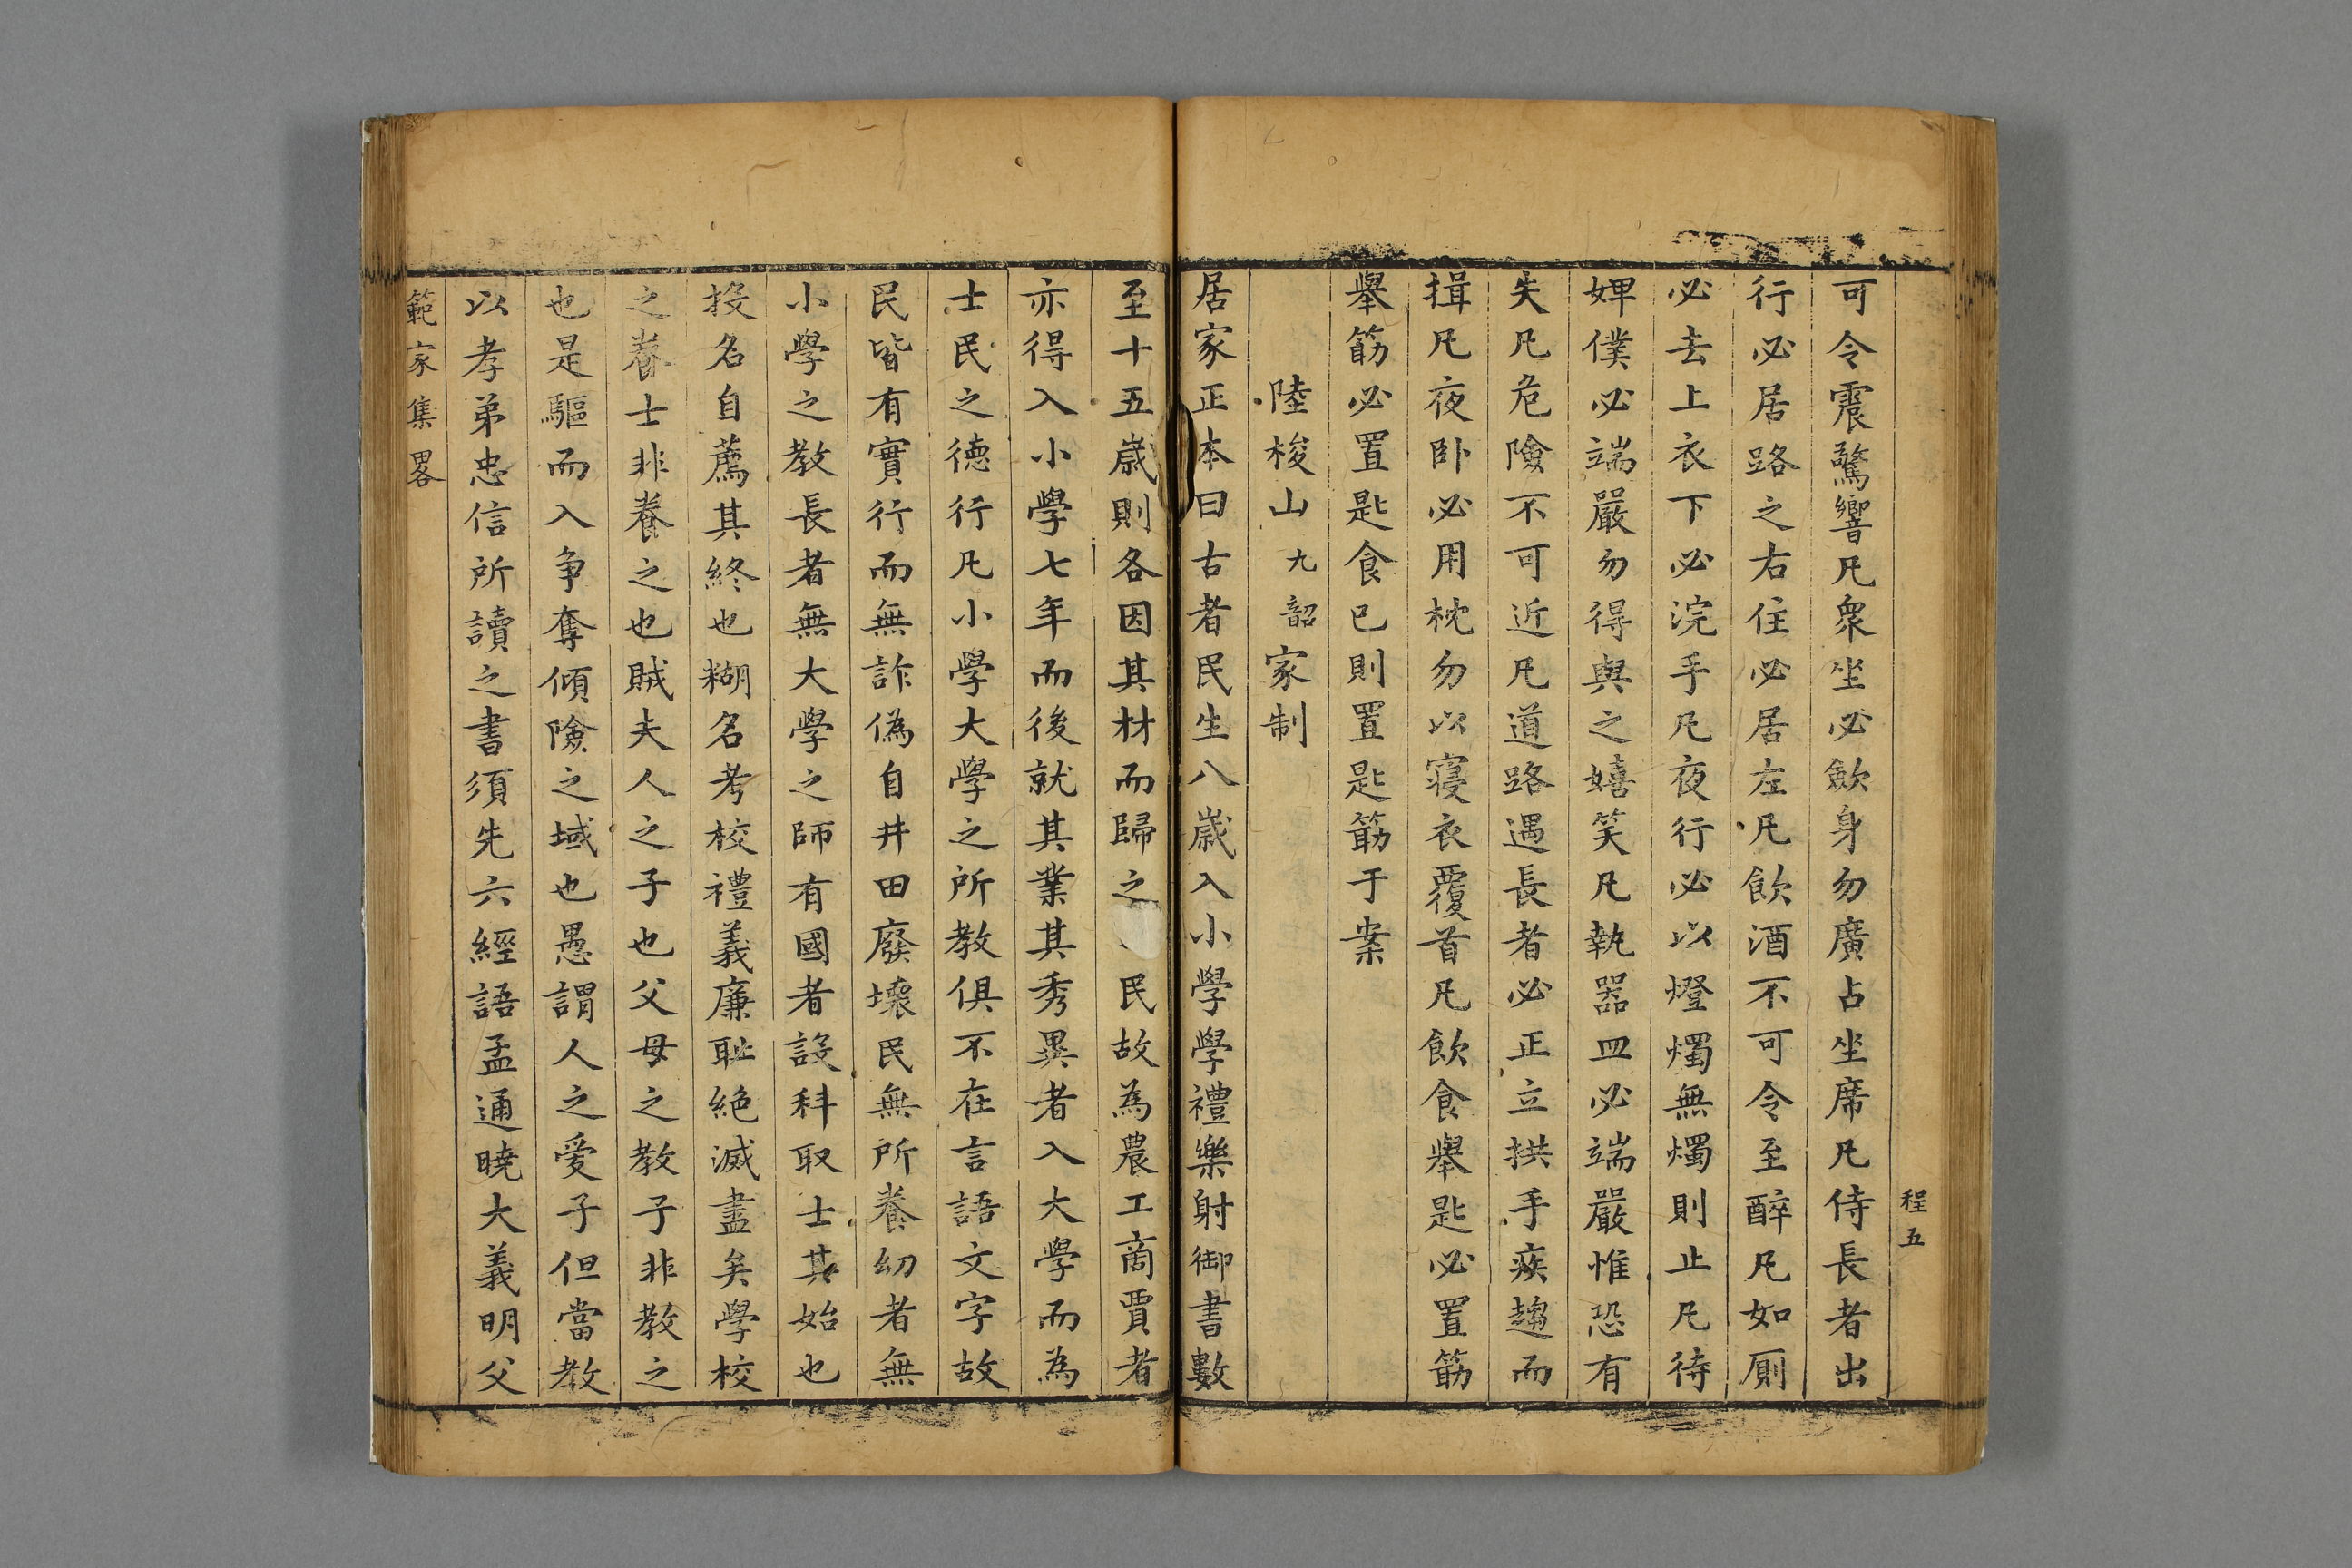 程五
可令震驚響凡衆坐必歛身勿廣占坐席凡侍長者出
行必居路之右住必居左凡飲酒不可令至醉凡如厠
必去上衣下必浣手凡夜行必以燈燭無燭則止凡待
婢僕必端嚴勿得與之嬉笑凡執器皿必端嚴惟恐有
失凡危險不可近凡道路遇長者必正立拱手疾趨而
揖凡夜卧必用枕勿以寢衣覆首凡飲食舉匙必置筯
舉筯必置匙食已則置匙筯于案
陸梭山九韶家制
居家正本曰古者民生八歲入小學學禮樂射御書數
至十五歲則各因其材而歸之民故為農工商賈者
亦得入小學七年而後就其業其秀異者入大學而為
士民之德行凡小學大學之所教俱不在言語文字故
民皆有實行而無詐偽自井田廢壞民無所養幼者無
小學之教長者無大學之師有國者設科取士其始也
投名自薦其終也糊名考校禮義廉耻絕滅盡矣學校
之養士非養之也賊夫人之子也父母之教子非教之
也是驅而入争奪傾險之域也愚謂人之愛子但當教
以孝弟忠信所讀之書須先六經語孟通曉大義明父
範家集畧